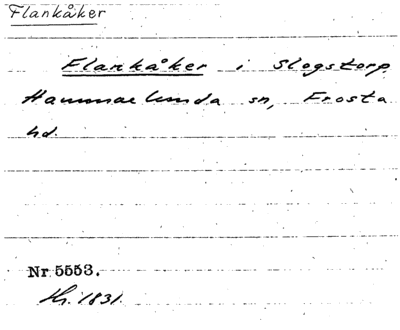 Flankåker
Flankåker i Slogstorp,
Hammarlunda sn, Frosta
hd.
Nr 5553.
1831.